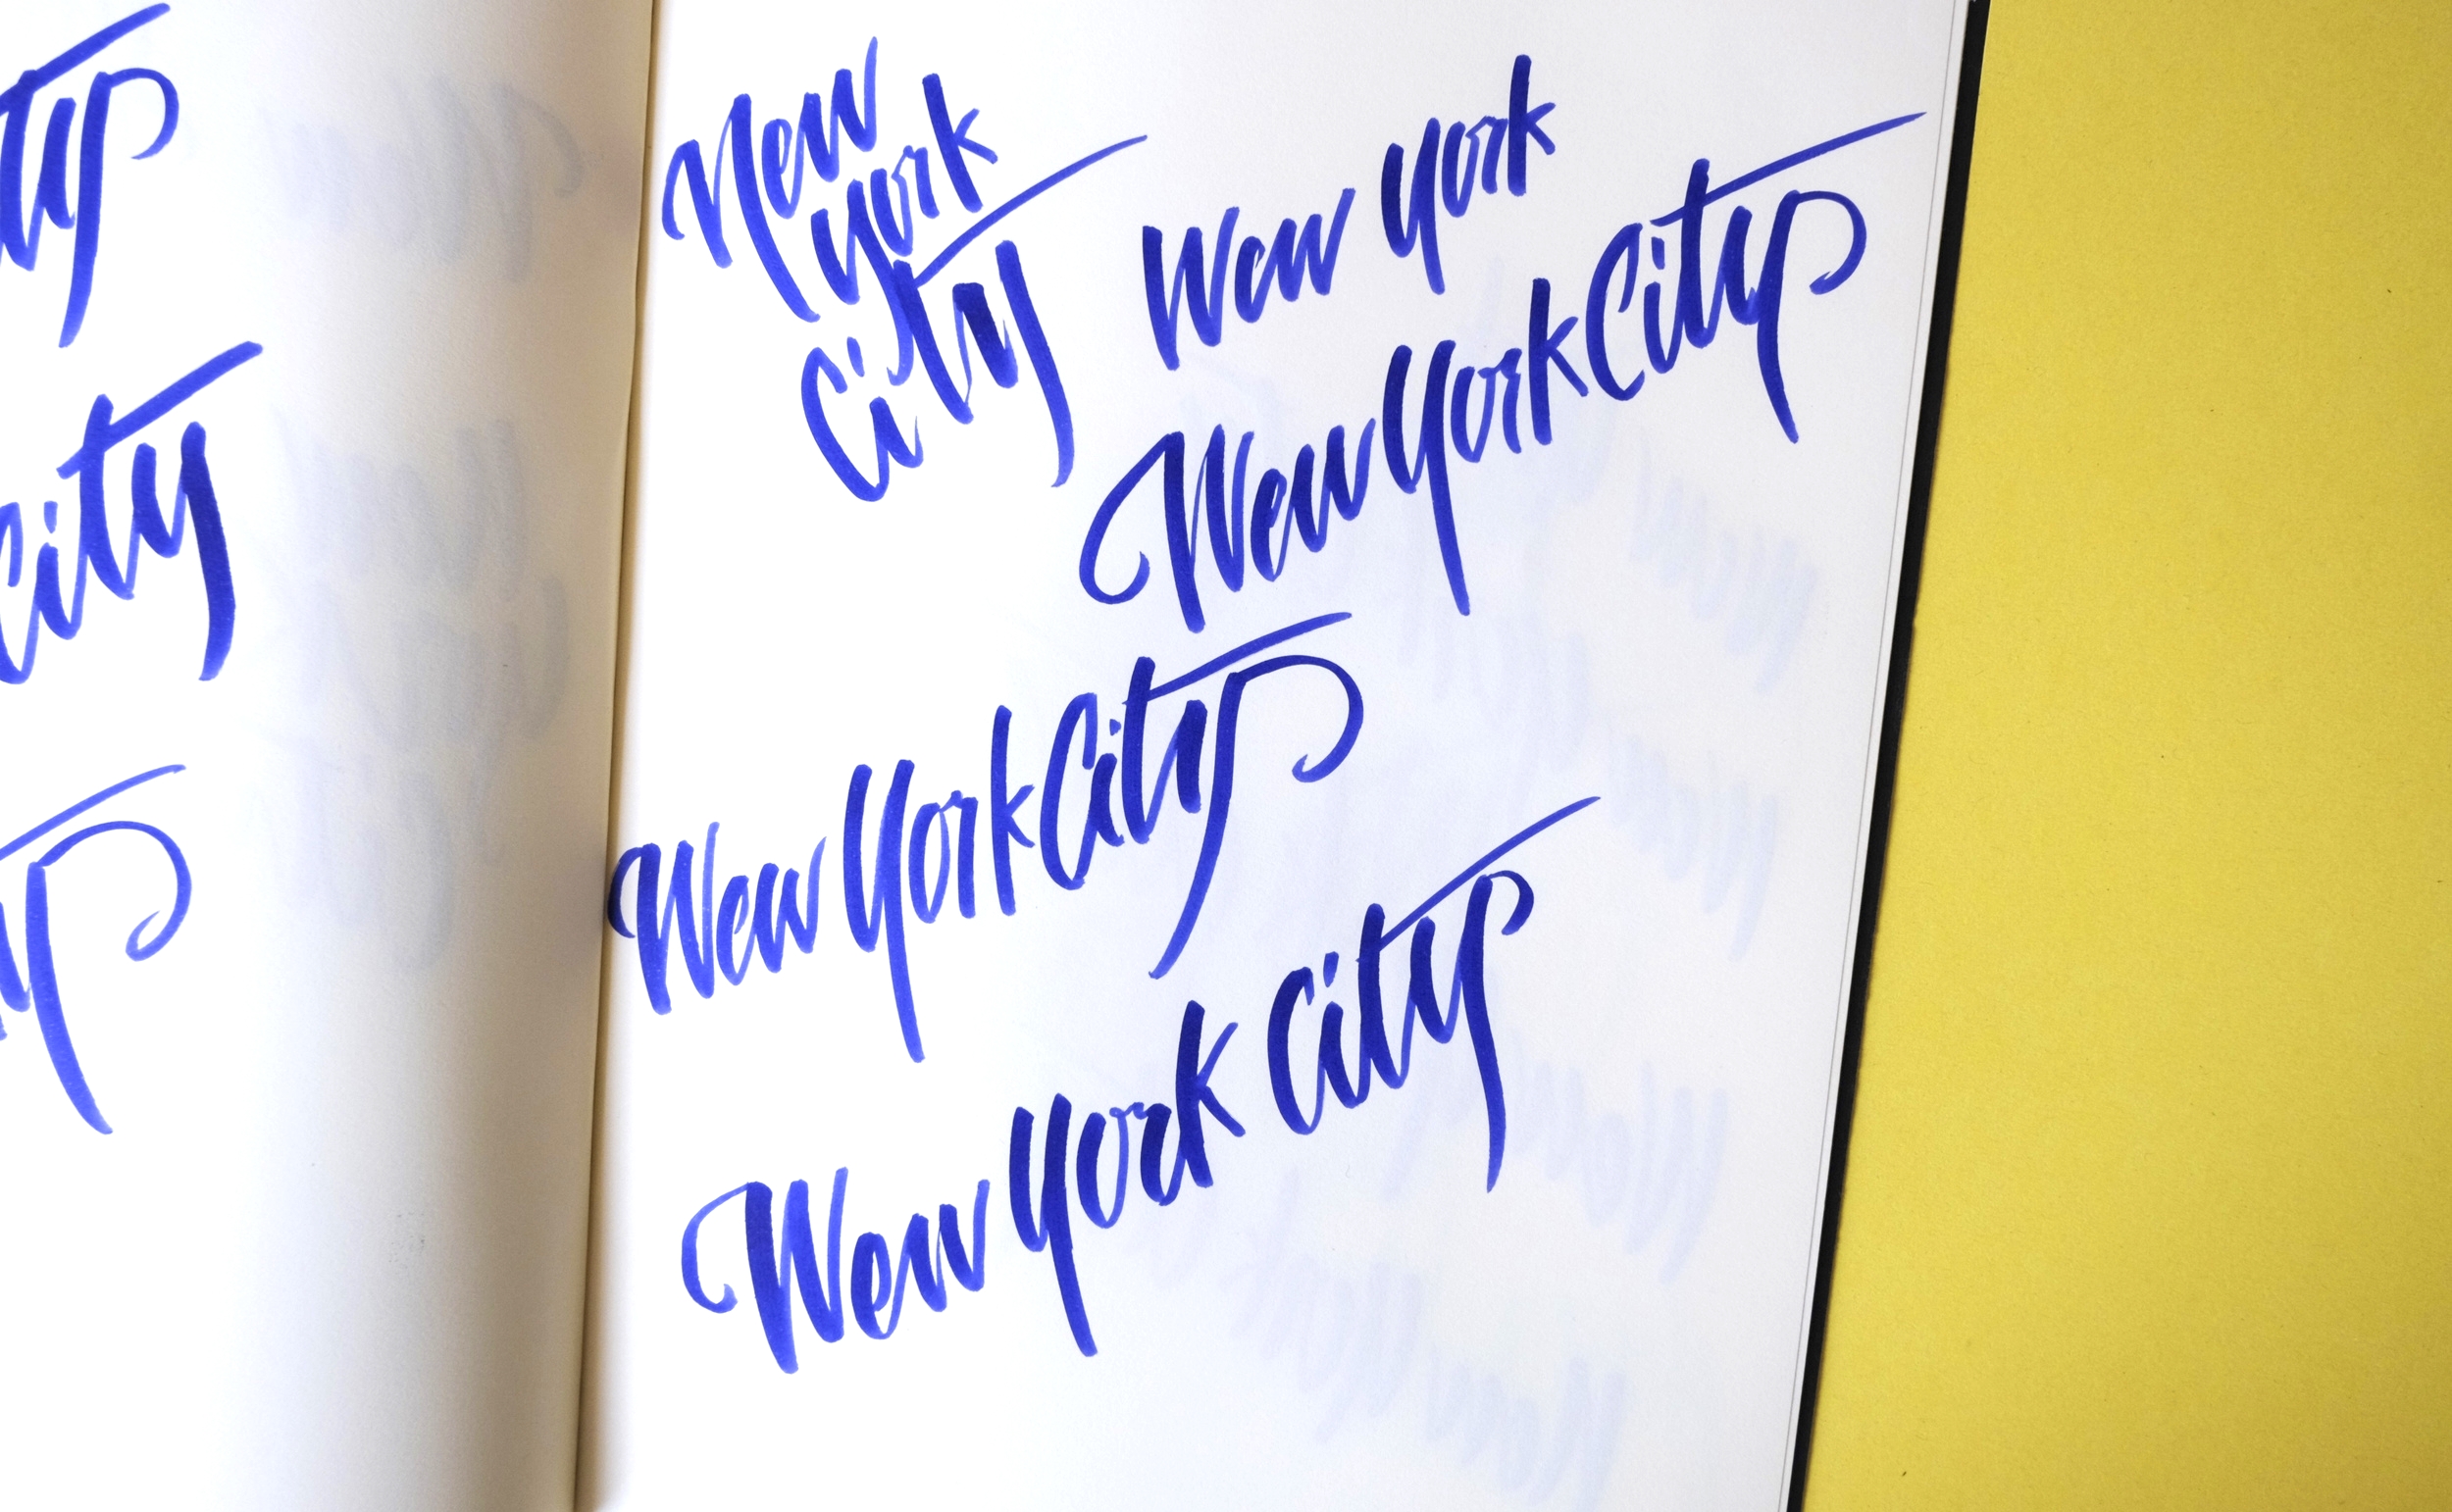 ty
City
y
New
York
City
New York
New York City
New York City
New York City